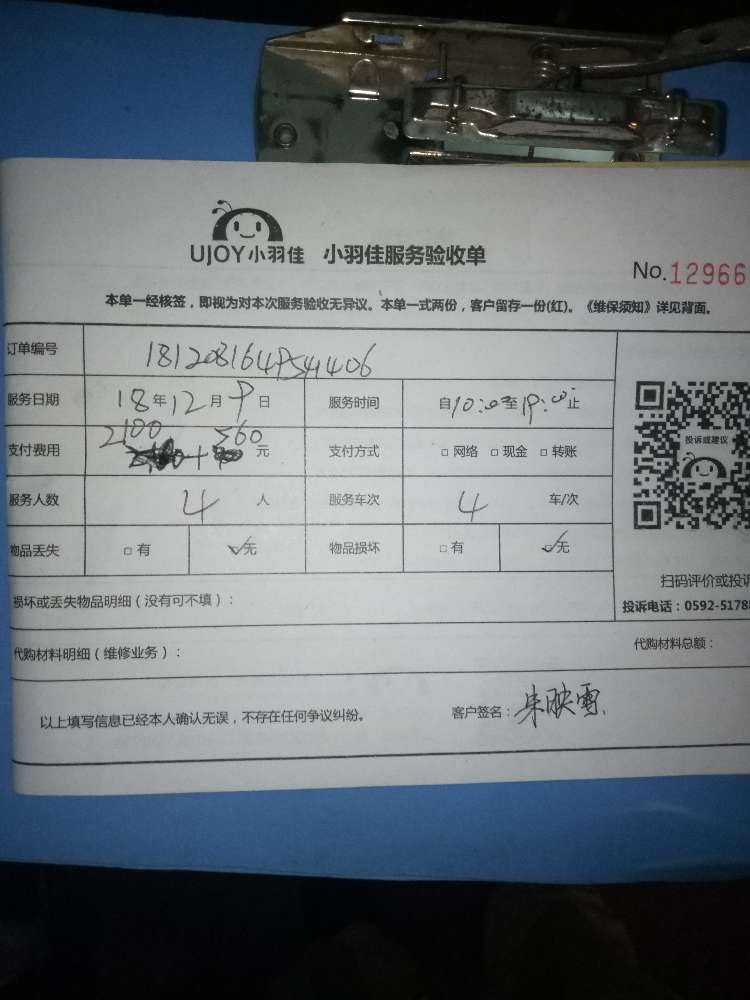 UJOY小羽佳 小羽佳服务验收单
No.12966
本单一经核签，即视为对本次服务验收无异议。本单一式两份，客户留存一份(红)。《维保须知》详见背面。
订单编号 181208164PS41406
服务日期 18年12月9日 服务时间 自10:00至19:00止
支付费用 2100 + 560 元 支付方式 □网络 □现金 □转账
投诉或建议
服务人数 4 人 服务车次 4 车/次
物品丢失 □有 ☑无 物品损坏 □有 ☑无
扫码评价或投诉
损坏或丢失物品明细（没有可不填）：
投诉电话：0592-5178
代购材料明细（维修业务）： 代购材料总额：
以上填写信息已经本人确认无误，不存在任何争议纠纷。 客户签名：朱映雪